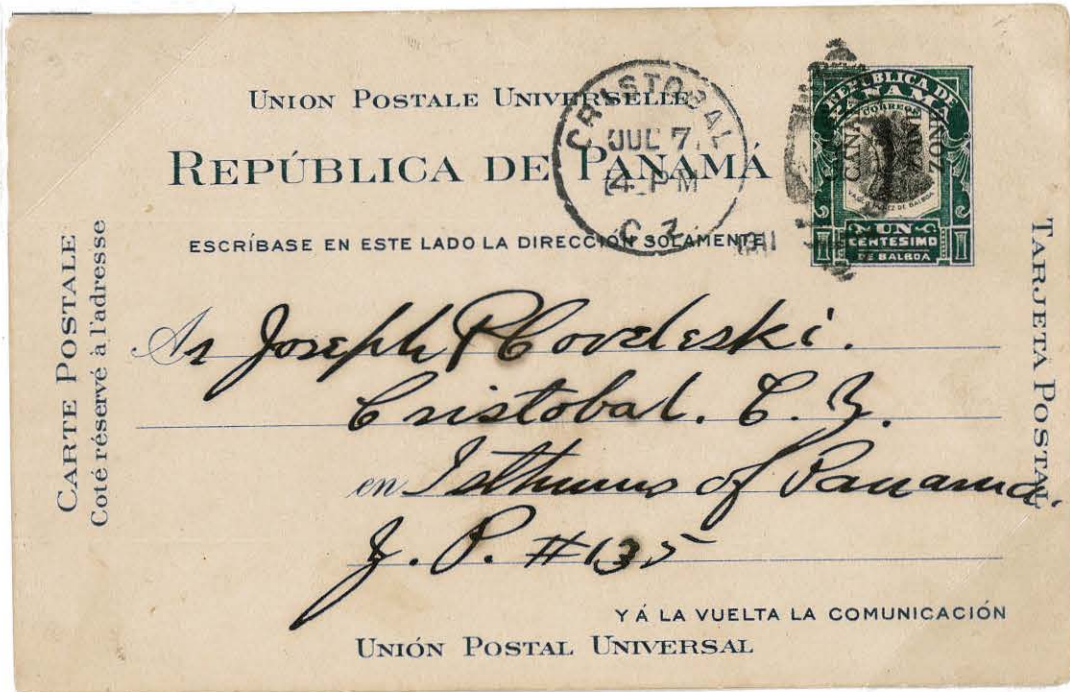 UNION POSTALE UNIVERSELLE
REPÚBLICA DE PANAMÁ
ESCRÍBASE EN ESTE LADO LA DIRECCIÓN SOLAMENTE
CRISTOBAL
JUL 7
4 PM
C Z
REPUBLICA DE
PANAMA
CORREOS
CANAL ZONE
CANAL ZONE
DE BALBOA
UN
CENTESIMO
DE BALBOA
CARTE POSTALE
Coté réservé à l'adresse
TARJETA POSTAL
Joseph P Coveleski.
Cristobal. C. Z.
en Isthmus of Panama.
#135
Y Á LA VUELTA LA COMUNICACIÓN
UNIÓN POSTAL UNIVERSAL